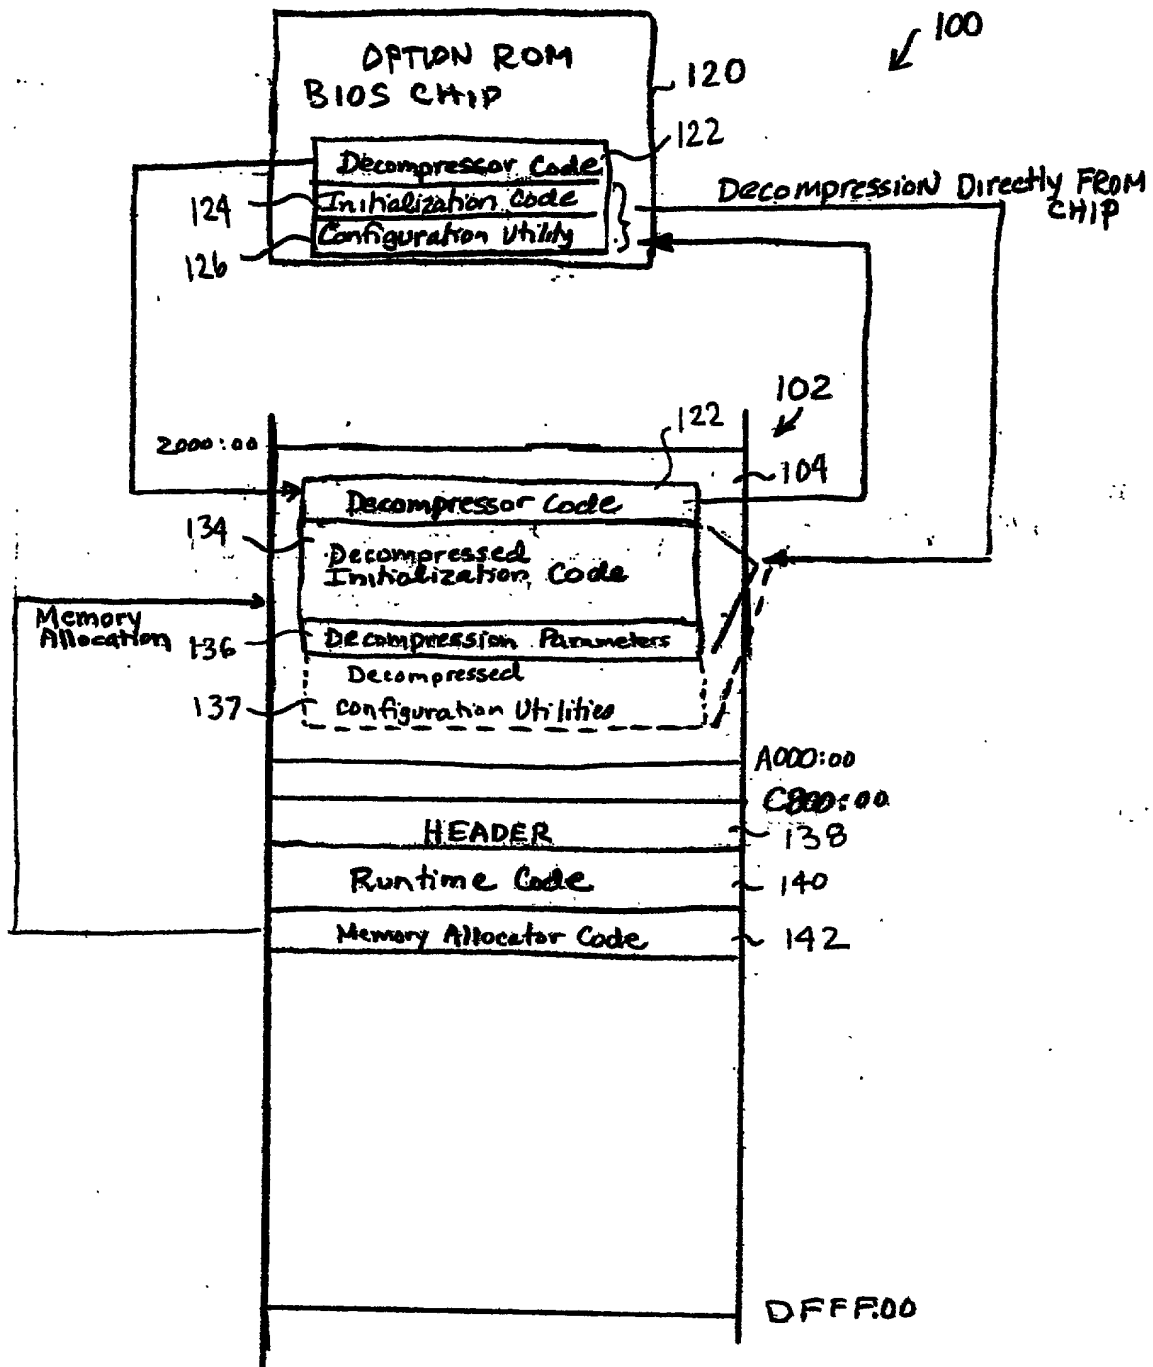 100
OPTION ROM
BIOS CHIP
120
122
Decompressor Code
124
Initialization Code
Configuration Utility
126
Decompression Directly FROM
CHIP
102
122
2000:00
104
Decompressor Code
134
Decompressed
Initialization Code
Memory
Allocation
136
Decompression Parameters
Decompressed
137
Configuration Utilities
A000:00
C800:00
HEADER
138
Runtime Code
140
Memory Allocator Code
142
DFFF:00